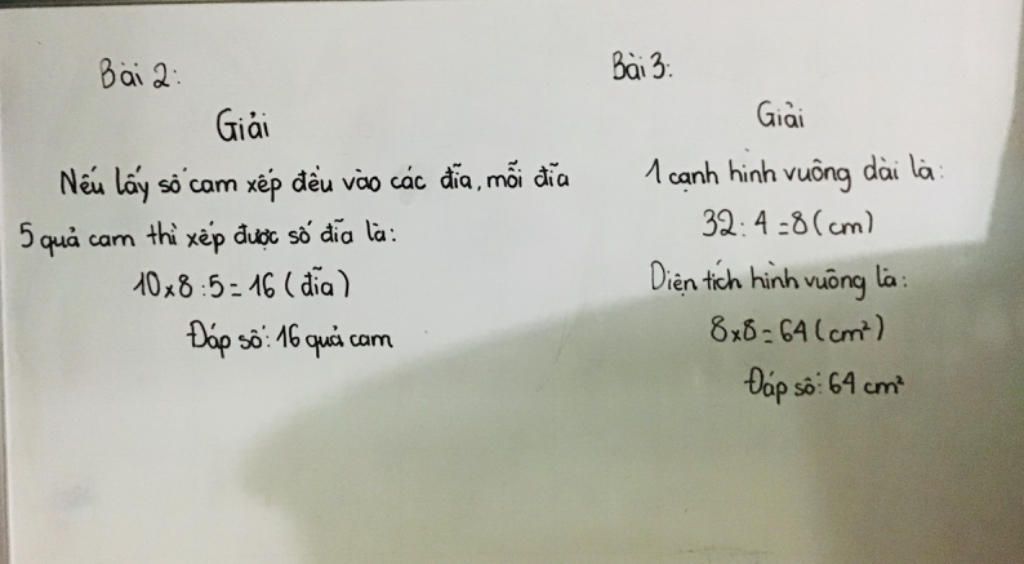 Bài 2:
Giải
Nếu lấy số cam xếp đều vào các đĩa, mỗi đĩa
5 quả cam thì xếp được số đĩa là:
10 x 8 : 5 = 16 (đĩa)
Đáp số: 16 quả cam
Bài 3:
Giải
1 cạnh hình vuông dài là:
32 : 4 = 8 (cm)
Diện tích hình vuông là:
8 x 8 = 64 (cm²)
Đáp số: 64 cm²